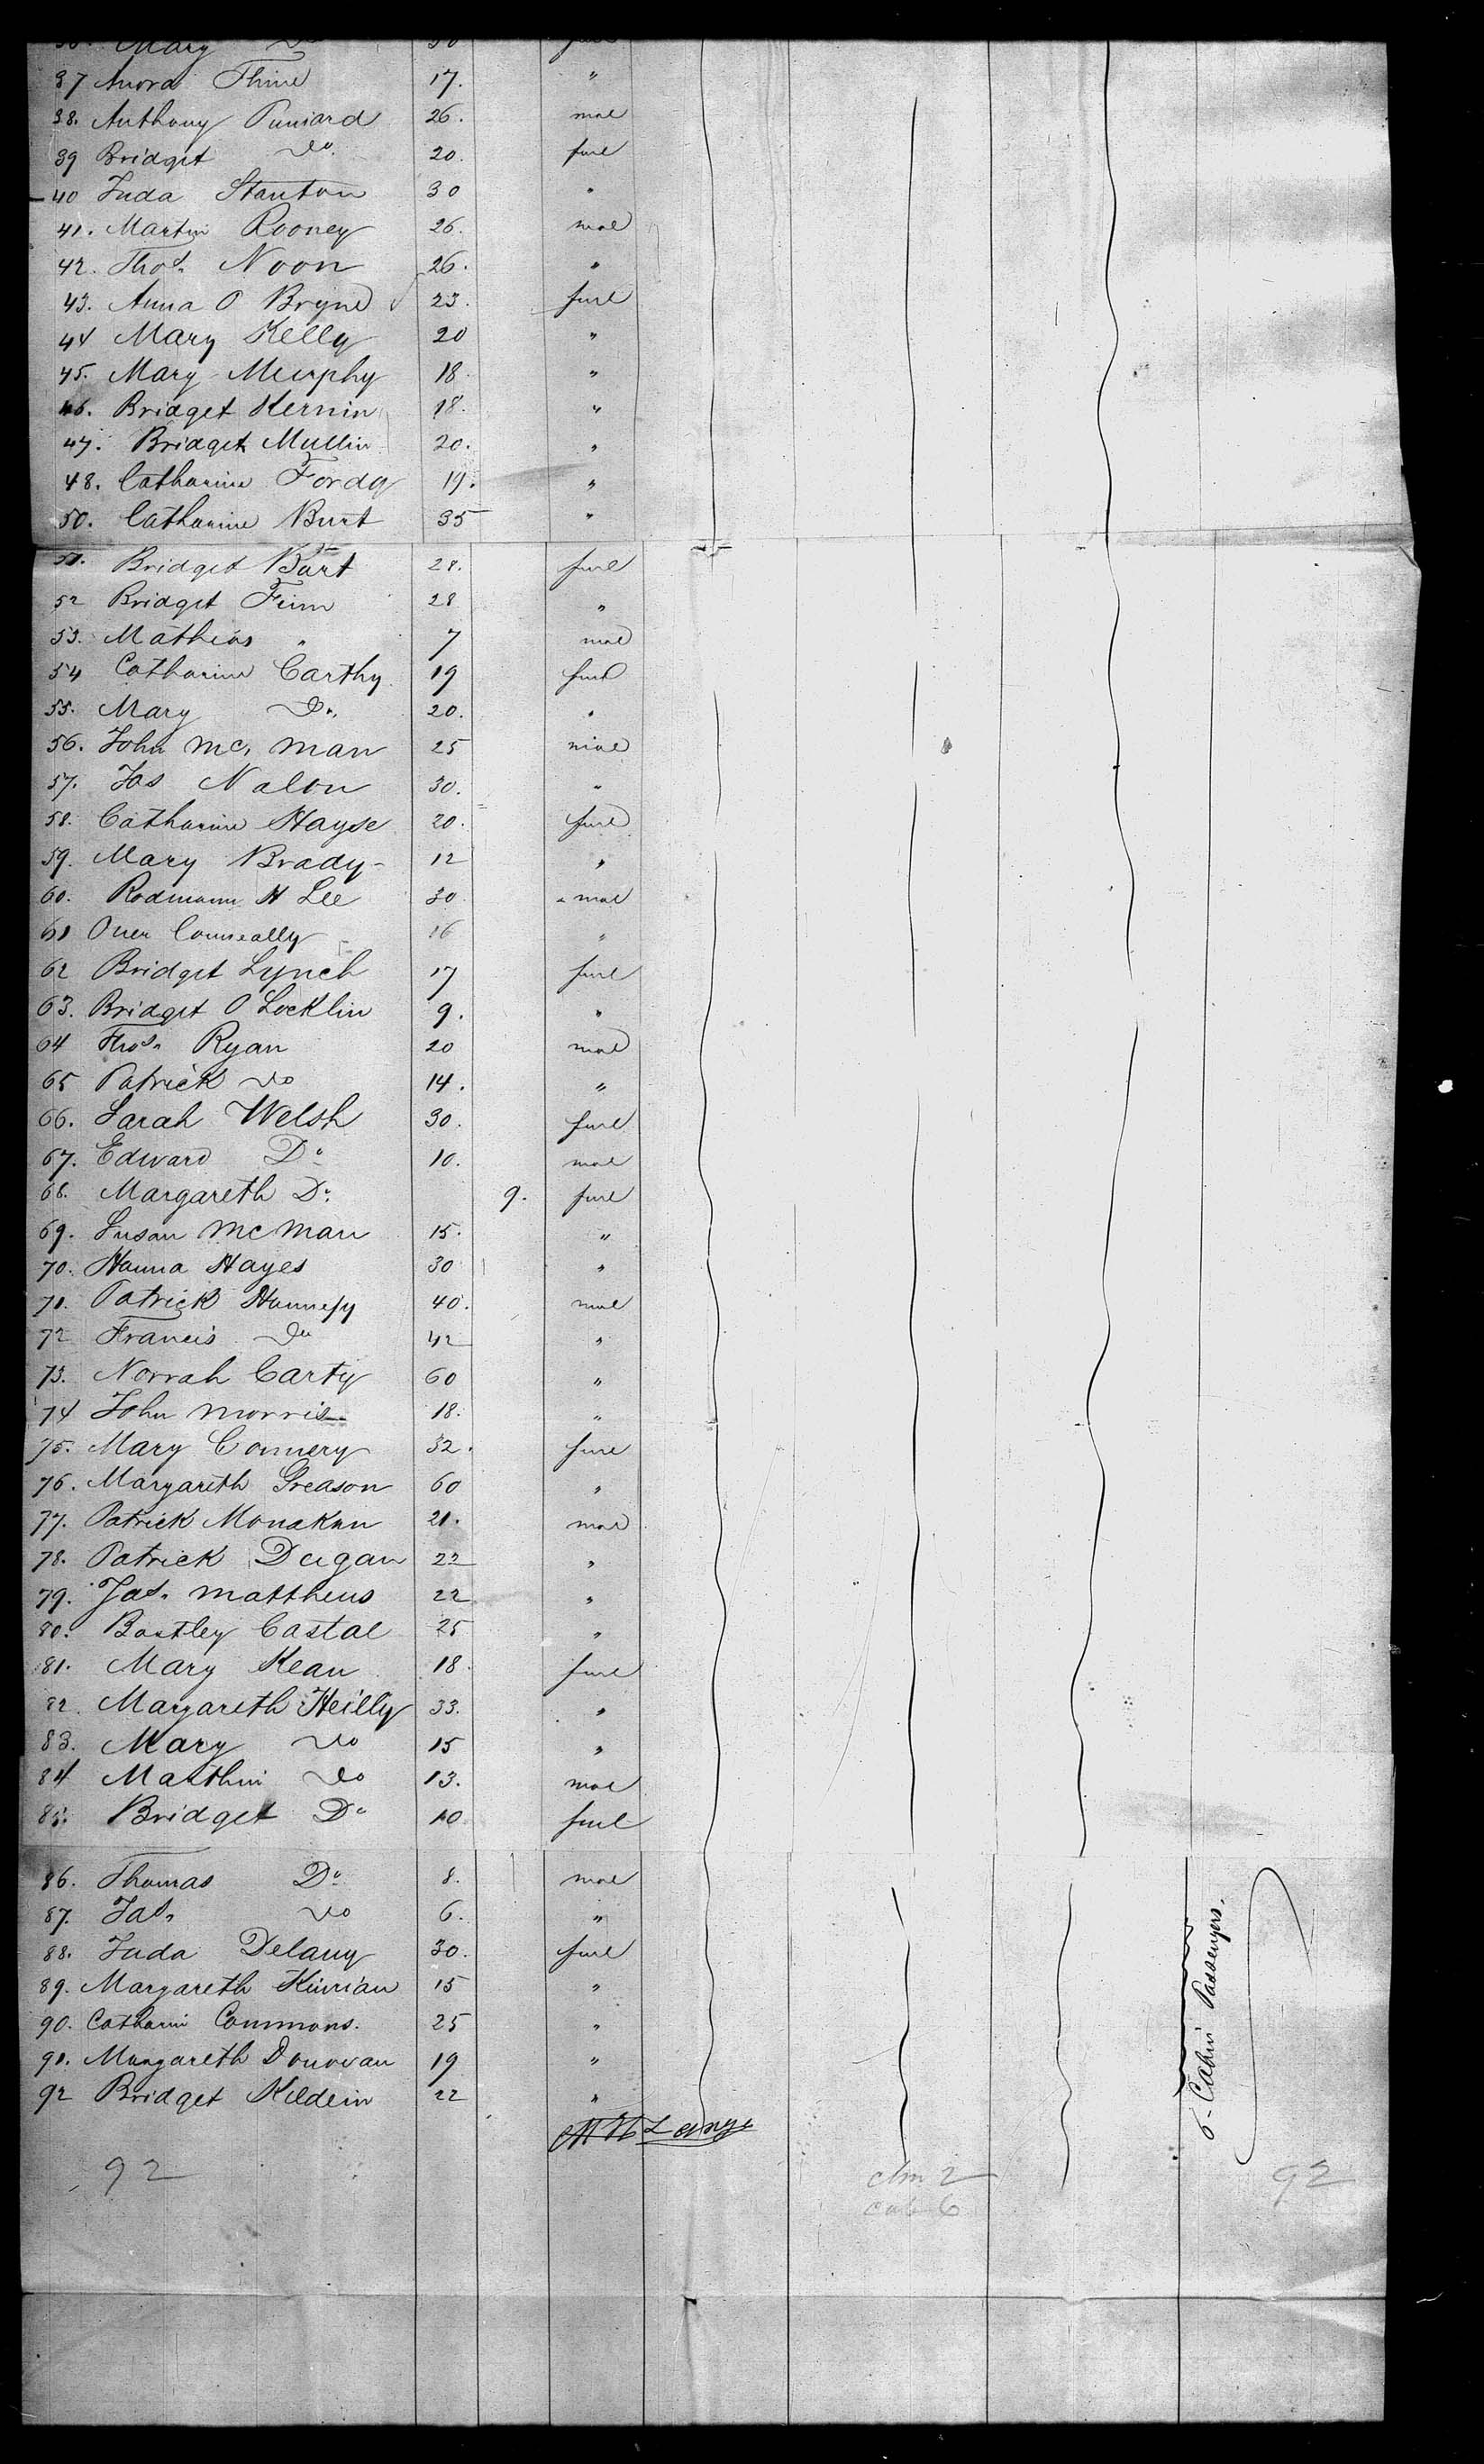 Mary Do 30 fml
37 Anora Thine 17. "
38. Anthony Puniard 26. mal
39 Bridget do. 20. fml
40 Juda Stanton 30 "
41. Martin Rooney 26. mal
42. Thos. Noon 26. "
43. Anna O Bryne 23. fml
44 Mary Kelly 20 "
45. Mary Murphy 18. "
46. Bridget Kernin 18. "
47. Bridget Mullin 20. "
48. Catharine Fordy 19. "
50. Catharine Burt 35 "
51. Bridget Burt 28. fml
52 Bridget Finn 28 "
53. Mathias " 7 mal
54 Catharine Carthy 19 fml
55. Mary Do. 20. "
56. John Mc. Man 25 mal
57. Jas Nalon 30. "
58. Catharine Hayse 20. fml
59. Mary Brady 12 "
60. Rodmann H Lee 30. mal
61 Owen Conneally 16 "
62 Bridget Lynch 17 fml
63. Bridget O Locklin 9. "
64 Thos. Ryan 20 mal
65 Patrick do 14. "
66. Sarah Welsh 30. fml
67. Edward Do 10. mal
68. Margareth Do. 9. fml
69. Susan McMan 15. "
70. Hanna Hayes 30 "
71. Patrick Hannefy 40. mal
72 Francis Do 42 "
73. Norrah Carty 60 "
74 John Morris 18. "
75. Mary Connery 32. fml
76. Margareth Greason 60 "
77. Patrick Monakan 21. mal
78. Patrick Dugan 22 "
79. Jas. Matthews 22 "
80. Bartley Castal 25 "
81. Mary Kean 18. fml
82. Margareth Heilly 33. "
83. Mary do 15 "
84 Marthin do 13. mal
85. Bridget Do 10 fml
86. Thomas Do 8. mal
87. Jas. do 6. "
88. Juda Delany 30. fml
89. Margareth Kinrian 15 "
90. Catharin Commons. 25 "
91. Margareth Donovan 19 "
92 Bridget Kildein 22 "
6 Cabin Passengers.
92
cab 6
92